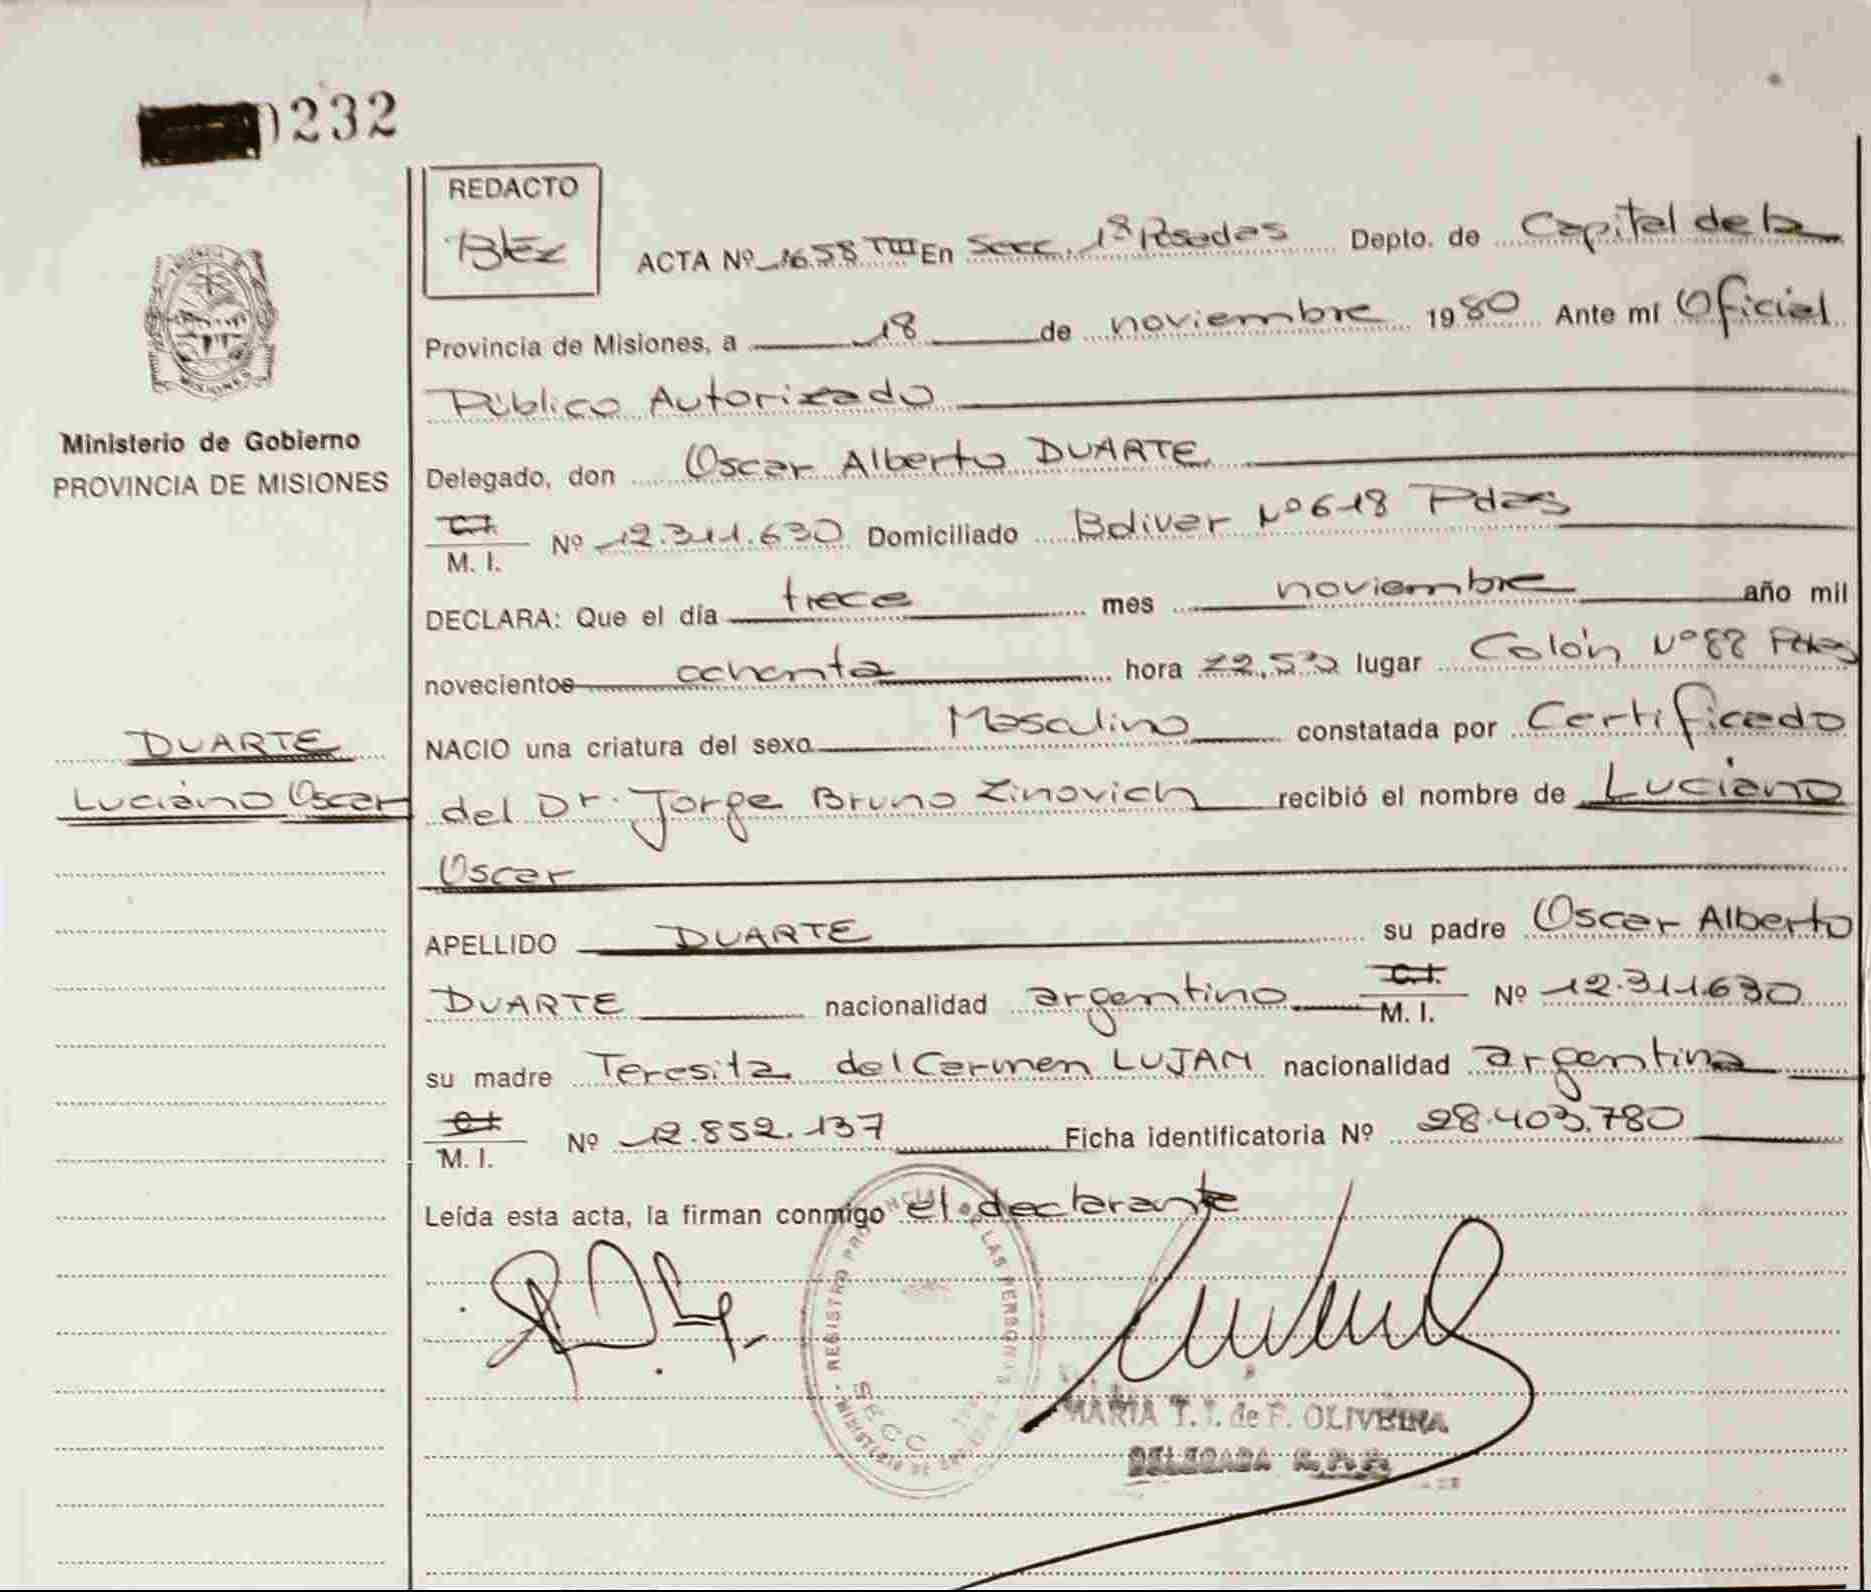 232
REDACTO
Báez
ACTA Nº 1658 TIII En Secc. 1ª Posadas Depto. de Capital de la
Provincia de Misiones, a 18 de noviembre 1980 Ante mí Oficial
Público Autorizado
Ministerio de Gobierno
PROVINCIA DE MISIONES
Delegado, don Oscar Alberto DUARTE
C.I.
M. I. Nº 12.311.630 Domiciliado Bolivar Nº 618 Pdas
DECLARA: Que el día trece mes noviembre año mil
novecientos ochenta hora 22,50 lugar Colón Nº 88 Pdas
DUARTE
Luciano Oscar
NACIO una criatura del sexo Masculino constatada por Certificado
del Dr. Jorge Bruno Zinovich recibió el nombre de Luciano
Oscar
APELLIDO DUARTE su padre Oscar Alberto
DUARTE nacionalidad argentino C.I. M. I. Nº 12.311.630
su madre Teresita del Carmen LUJAN nacionalidad argentina
C.I.
M. I. Nº 12.852.137 Ficha identificatoria Nº 28.403.780
Leída esta acta, la firman conmigo el declarante
REGISTRO PROVINCIAL DE LAS PERSONAS
SECC
MARIA T. de F. OLIVEIRA
DELEGADA R.P.P.